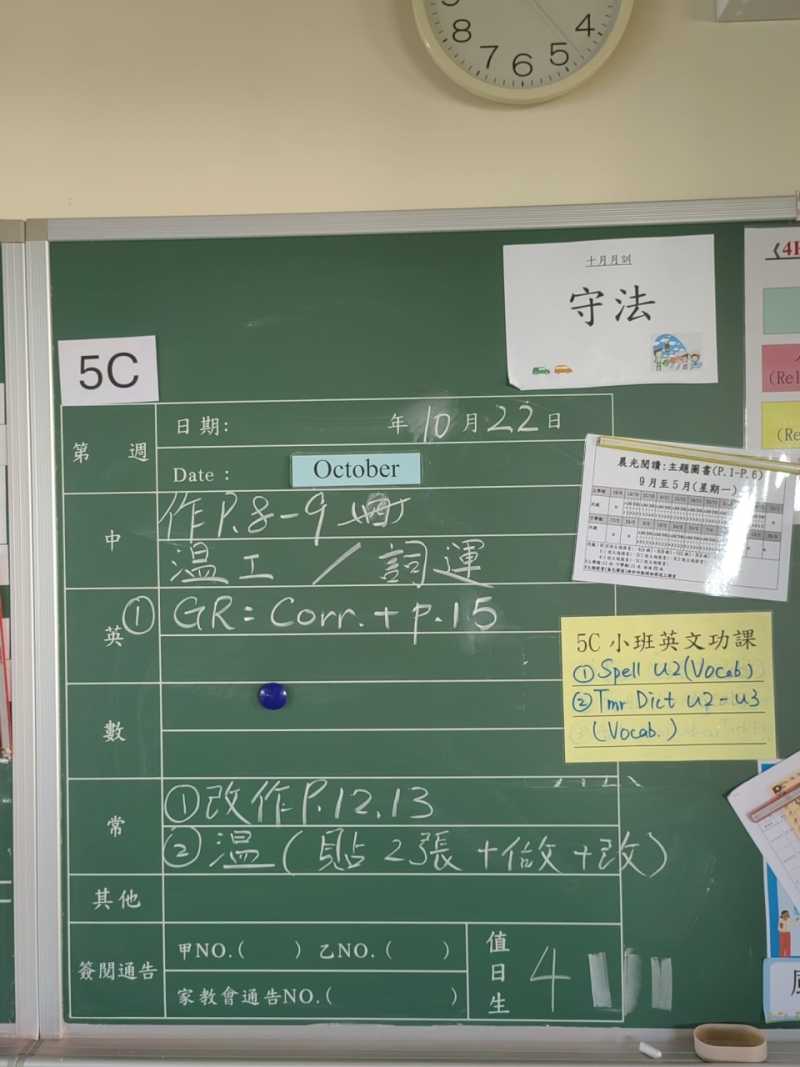 8
7
6
5
4
十月月訓
守法
5C
第 週
日期: 年10月22日
Date : October
中
作P.8-9
温工 / 詞運
英
① GR: Corr. + p.15
數
常
①改作P.12.13
②温(貼2張+做+改)
其他
簽閱通告
甲NO.( ) 乙NO.( )
家教會通告NO.( )
值日生
4
《4
(Rel
(Re
晨光閱讀:主題圖書(P.1-P.6)
9月至5月(星期一)
5C 小班英文功課
①Spell U2(Vocab)
②Tmr Dict U2-U3
(Vocab.)